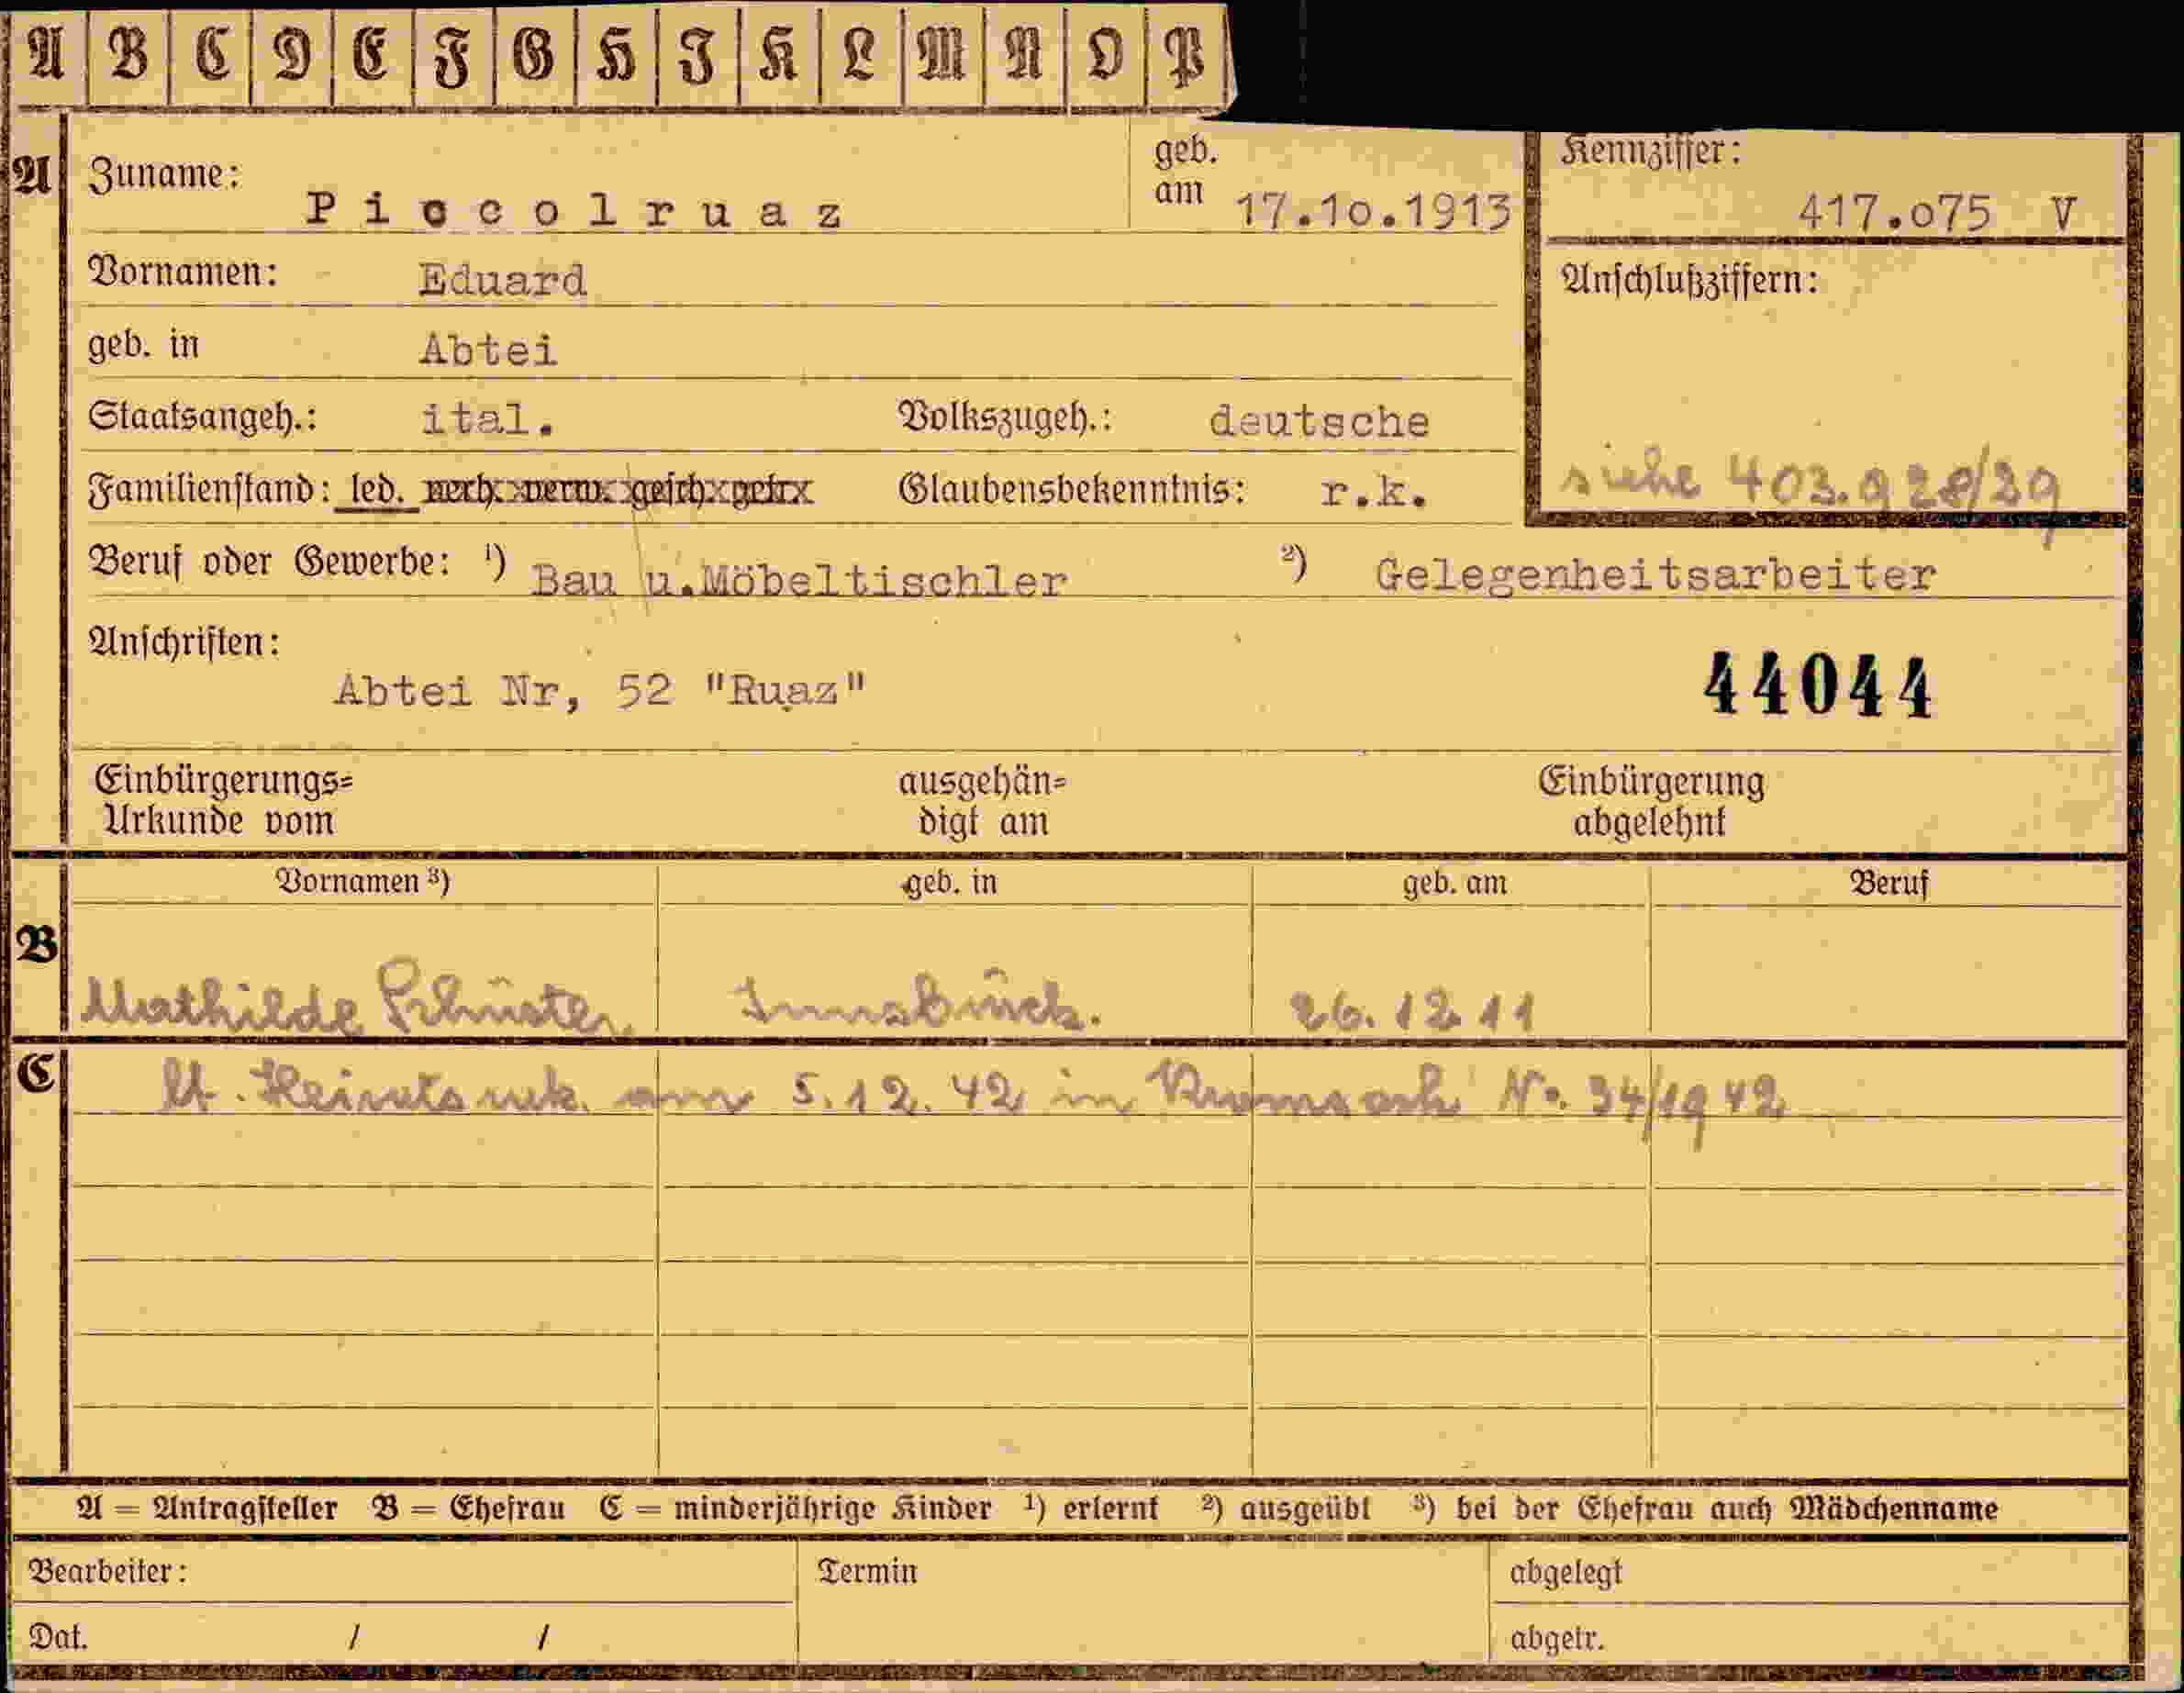 A B C D E F G H I K L M N O P
A Zuname: Piccolruaz geb. am 17.10.1913 Kennziffer: 417.075 V
Vornamen: Eduard Anschlußziffern:
geb. in Abtei
Staatsangeh.: ital. Volkszugeh.: deutsche
siehe 403.928/29
Familienstand: led. verh. verw. gesch. getr. Glaubensbekenntnis: r.k.
Beruf oder Gewerbe: ¹) Bau u.Möbeltischler ²) Gelegenheitsarbeiter
Anschriften:
Abtei Nr, 52 "Ruaz" 44044
Einbürgerungs= ausgehän= Einbürgerung
Urkunde vom digt am abgelehnt
Vornamen ³) geb. in geb. am Beruf
B
Mathilde Schuster Innsbruck. 26.12.11
C
lt. Heiratsurk. am 5.12.42 in Kramsach No. 34/1942
A = Antragsteller B = Ehefrau C = minderjährige Kinder ¹) erlernt ²) ausgeübt ³) bei der Ehefrau auch Mädchenname
Bearbeiter: Termin abgelegt
Dat. / / abgetr.